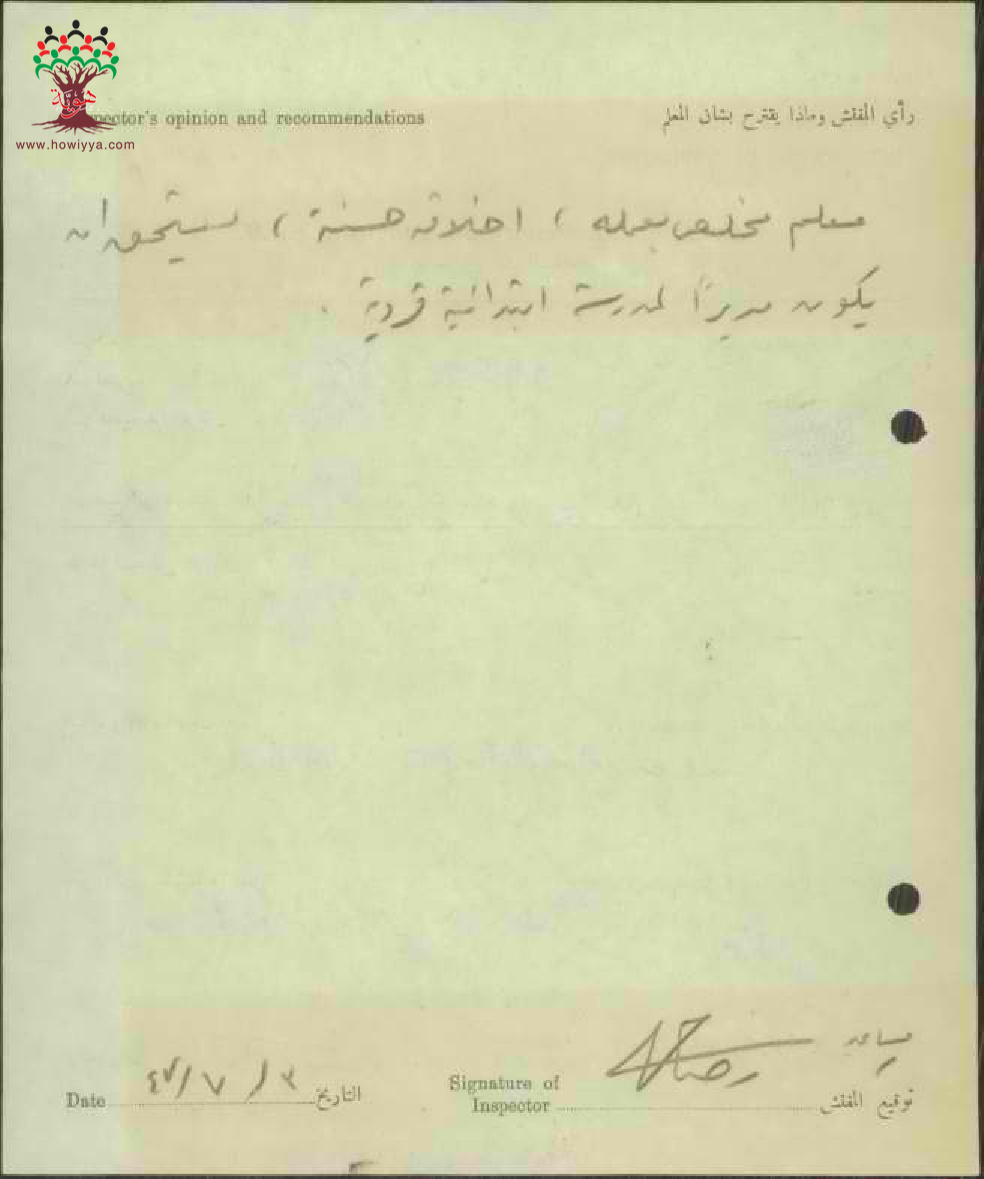 هوية
www.howiyya.com
pector's opinion and recommendations
رأي المفتش وماذا يقترح بشأن المعلم
معلم مخلص بعمله ، اخلاقه حسنة ، يستحق ان
يكون مديرًا لمدرسة ابتدائية قروية .
Date ٣ / ٧ / ٤٧ التاريخ
Signature of
Inspector توقيع المفتش